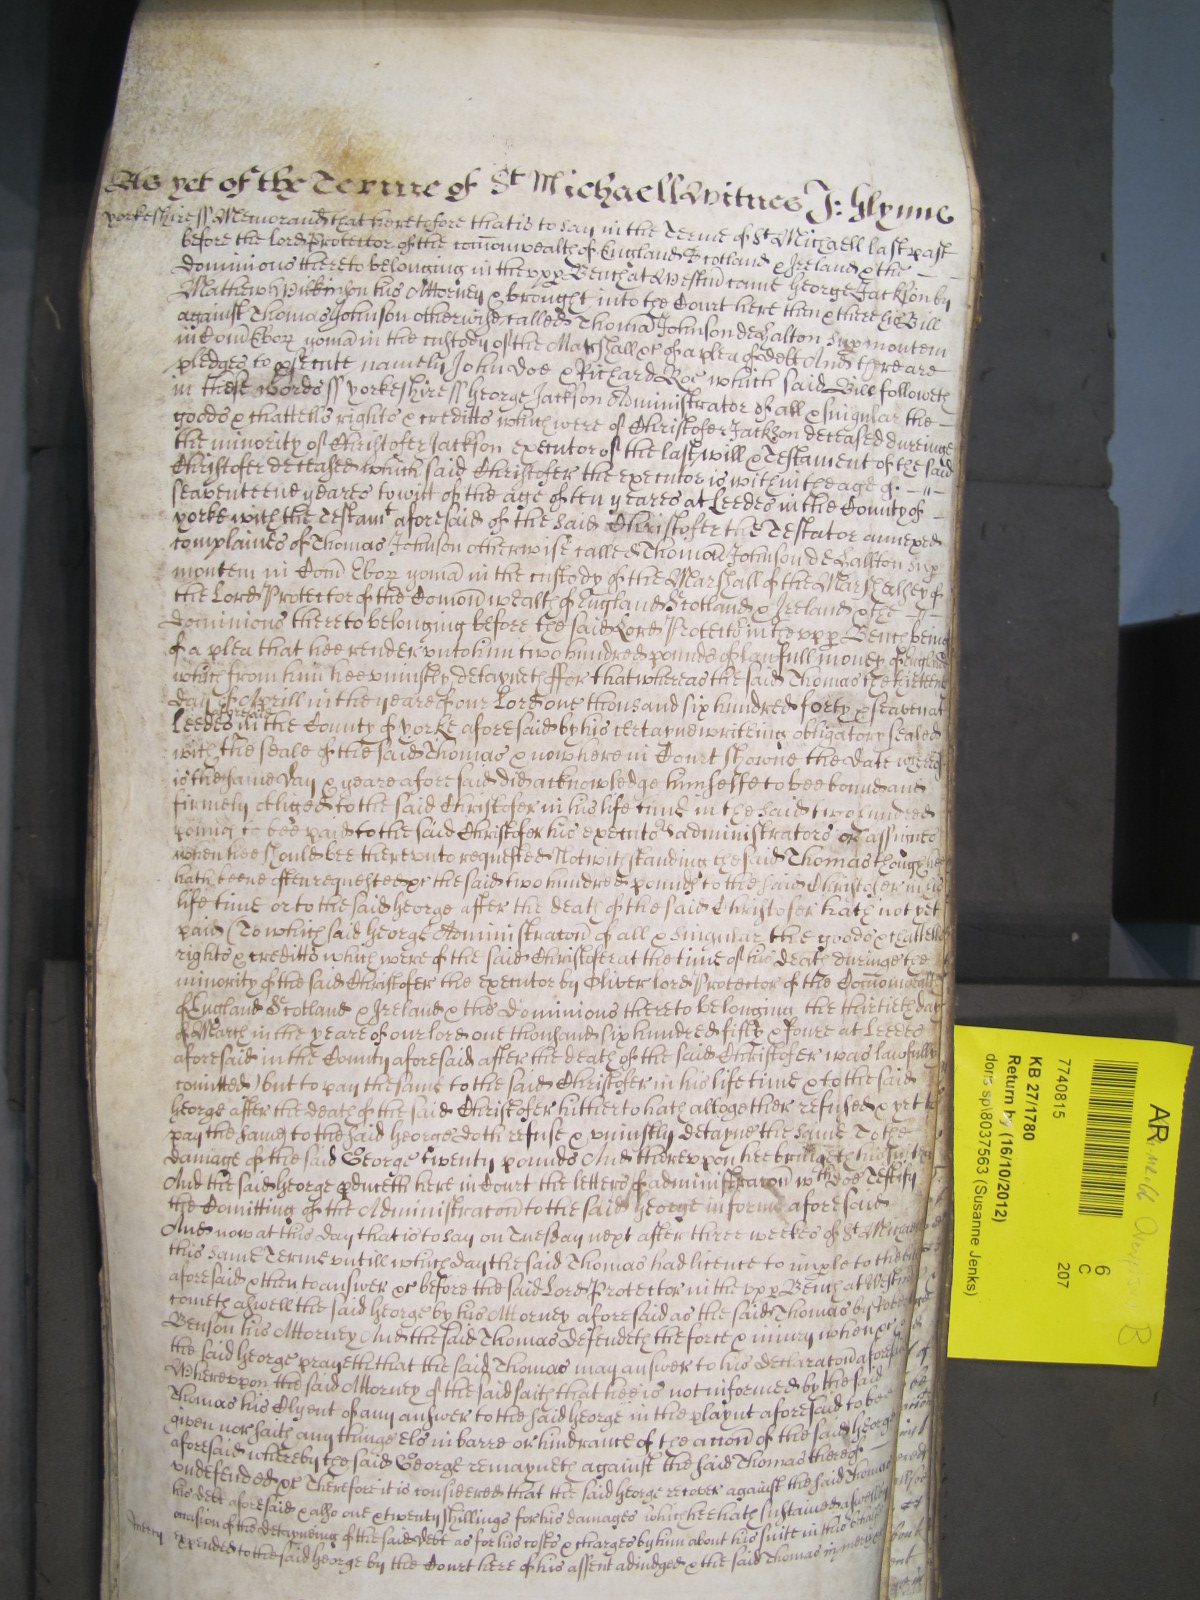 As yet of the Terme of St Michaell Witnes J: Glynne
yorkeshire ss Memorand that heretofore that is to say in the Terme of St Michaell last past
before the lord Protector of the comonwealth of England Scotland & Ireland & the
dominions thereto belonging in the vpp Bench at Westm came George Jackson by
Mathew his Attorney & brought into the Court here then & there his Bill
against Thomas Johnson otherwise called Thoma Johnson de Halton Sup montem
in Com Ebor yoma in the custody of the Marshall &c of a plea of debt And there are
pledges to psecute namely John Doe & Richard Roe which said Bill followeth
in these words ss yorkeshire ss George Jackson Administrator of all & singular the
goods & chattells rights & creditts which were of Christofer Jackson deceased dureinge
the minority of Christofer Jackson executor of the last will & Testament of the said
Christofer deceased which said Christofer the executor is within the age of
seaventeene yeares to witt of the age of ten yeares at Leedes in the County of
yorke with the Testamt aforesaid of the said Christofer the Testator annexed
complaines of Thomas Johnson otherwise called Thoma Johnson de Halton Sup
montem in Com Ebor yoma in the custody of the Marshall of the Marshalsey of
the Lord Protector of the Comon wealth of England Scotland & Ireland & the
dominions thereto belonging before the said Lord Protector in the vpp Bench being
of a plea that hee render vnto him two hundred pounds of lawfull money of England
which from him hee vniustly detayneth ffor that whereas the said Thomas the
day of Aprill in the yeare of our Lord one thousand six hundred forty & seaven at
Leedes aforesaid in the County of yorke aforesaid by his certayne writeing obligatory sealed
with the seale of the said Thomas & now here in Court showne the date whereof
is the same day & yeare aforesaid did acknowledge himselfe to bee bound and
firmely obliged to the said Christofer in his life time in the said two hundred
pounds to bee paid to the said Christofer his executors administrators or assignes
when hee should bee therevnto requested Notwithstanding the said Thomas though hee
hath beene often requested &c the said two hundred pounds to the said Christofer in his
life time or to the said George after the death of the said Christofer hath not yet
paid (To which said George Administracon of all & singular the goods & chattells
rights & creditts which were of the said Christofer at the time of his death dureinge the
minority of the said Christofer the executor by Oliver lord Protector of the Comonwealth
of England Scotland & Ireland & the dominions thereto belonging the thirtieth day
of March in the yeare of our lord one thousand six hundred fifty & foure at Leedes
aforesaid in the County aforesaid after the death of the said Christofer was lawfully
comitted) but to pay the same to the said Christofer in his life time & to the said
George after the death of the said Christofer hitherto hath altogether refused & yet to
pay the same to the said George doth refuse & vniustly detayne the same To the
damage of the said George twenty pounds And therevpon hee bringeth his suite
And the said George pduceth here in Court the letters of administracon wch doe Testify
the Comitting of the Administracon to the said George in forme aforesaid
And now at this day that is to say on Tuesday next after three weekes of St Michaell
this same Terme vntill which day the said Thomas had licence to imple to the bill
aforesaid & then to answer &c before the said Lord Protector in the vpp Bench at Westm
cometh aswell the said George by his Attorney aforesaid as the said Thomas by
Benson his Attorney And the said Thomas defendeth the force & iniury when &c
the said George prayeth that the said Thomas may answer to his declaracon aforesaid
Wherevpon the said Attorney of the said saith that hee is not informed by the said
Thomas his Clyent of any answer to the said George in the playnt aforesaid to bee
given nor saith any thinge els in barre or hindrance of the accon of the said George
aforesaid whereby the said George remayneth against the said Thomas thereof
vndefended &c Therefore it is considered that the said George recover against the said Thomas
his debt aforesaid & also one & twenty shillings for his damages which hee hath sustained aswell by
occasion of the detayneing of the said debt as for his costs & charges by him about his suite in this
mercy expended to the said George by the Court here of his assent adiudged & the said Thomas in mercy
AR
6
C
207
7740815
KB 27/1780
Return by (16/10/2012)
doris sp\8037563 (Susanne Jenks)